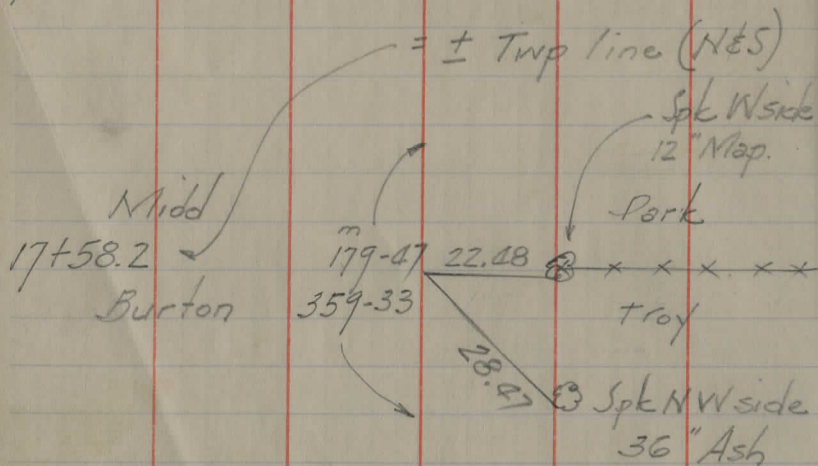 = ± Twp line (N&S)
Spk W side
12" Map.
Midd
Park
17+58.2
m
179-47
22.48
Burton
359-33
Troy
28.47
Spk N W side
36" Ash